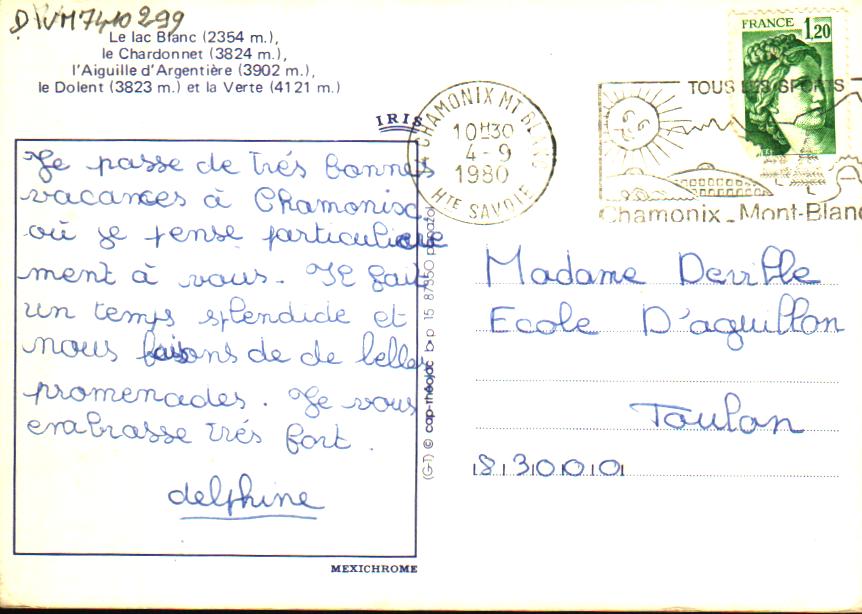 DVM7410299
Le lac Blanc (2354 m.),
le Chardonnet (3824 m.),
l'Aiguille d'Argentière (3902 m.),
le Dolent (3823 m.) et la Verte (4121 m.)
IRIS
CHAMONIX MT BLANC
10H30
4-9
1980
HTE SAVOIE
TOUS LES SPORTS
Chamonix_Mont-Blanc
FRANCE
1,20
Je passe de trés bonnes
vacances à Chamonix
où je pense particulière
ment à vous. Il fait
un temps splendide et
nous faisons de de belles
promenades. Je vous
embrasse trés fort.
delphine
(G-T) © cap-théojac b>p 15 87350 panazol
Madame Deville
Ecole D'aguillon
Toulon
83000
MEXICHROME